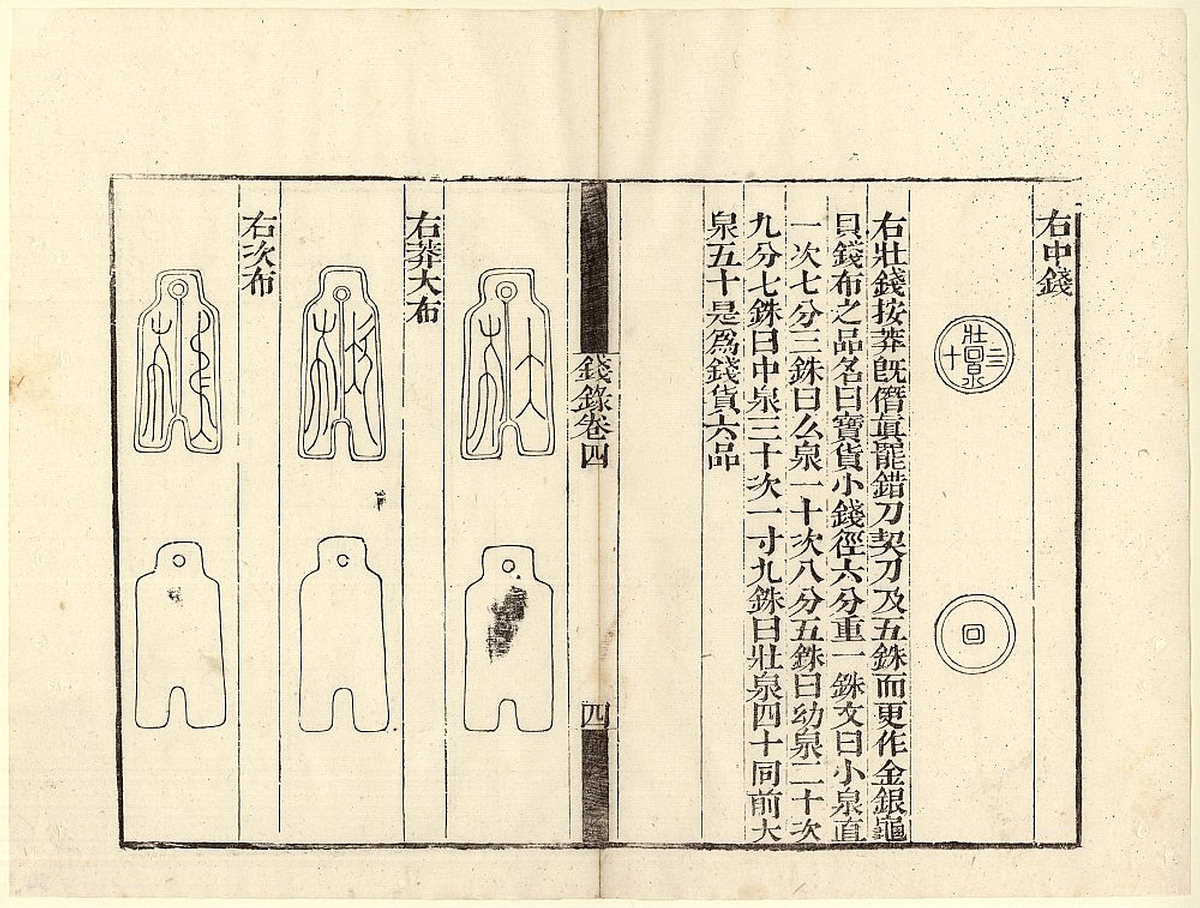 右中錢
壯泉四十
右壯錢按莽旣僭眞罷錯刀契刀及五銖而更作金銀龜
貝錢布之品名曰寶貨小錢徑六分重一銖文曰小泉直
一次七分三銖曰么泉一十次八分五銖曰幼泉二十次
九分七銖曰中泉三十次一寸九銖曰壯泉四十同前大
泉五十是爲錢貨六品
錢錄卷四
四
右莽大布
右次布